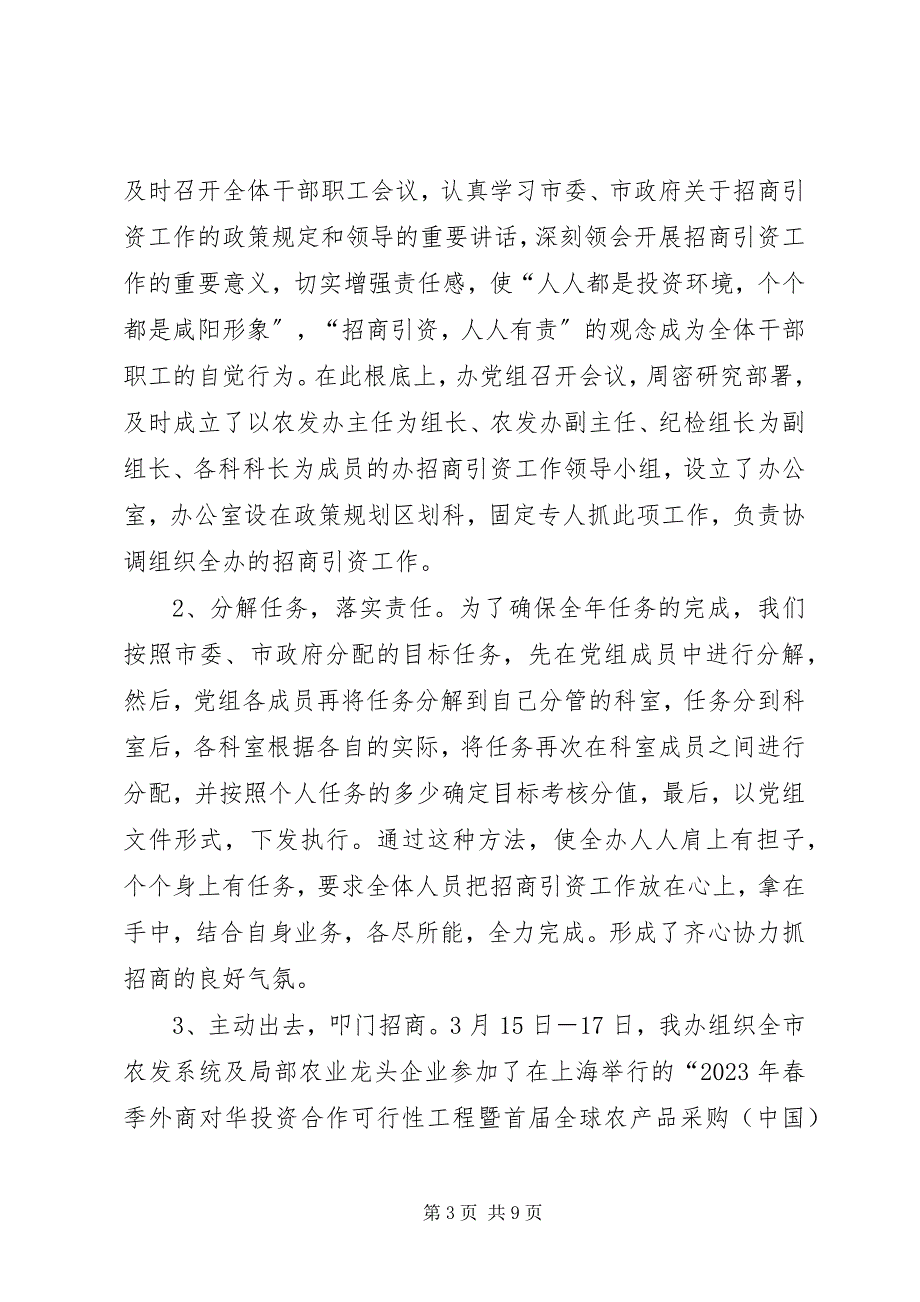 及时召开全体干部职工会议，认真学习市委、市政府关于招商引
资工作的政策规定和领导的重要讲话，深刻领会开展招商引资工
作的重要意义，切实增强责任感，使“人人都是投资环境，个个
都是咸阳形象〞，“招商引资，人人有责〞的观念成为全体干部
职工的自觉行为。在此根底上，办党组召开会议，周密研究部署，
及时成立了以农发办主任为组长、农发办副主任、纪检组长为副
组长、各科科长为成员的办招商引资工作领导小组，设立了办公
室，办公室设在政策规划区划科，固定专人抓此项工作，负责协
调组织全办的招商引资工作。
2、分解任务，落实责任。为了确保全年任务的完成，我们
按照市委、市政府分配的目标任务，先在党组成员中进行分解，
然后，党组各成员再将任务分解到自己分管的科室，任务分到科
室后，各科室根据各自的实际，将任务再次在科室成员之间进行
分配，并按照个人任务的多少确定目标考核分值，最后，以党组
文件形式，下发执行。通过这种方法，使全办人人肩上有担子，
个个身上有任务，要求全体人员把招商引资工作放在心上，拿在
手中，结合自身业务，各尽所能，全力完成。形成了齐心协力抓
招商的良好气氛。
3、主动出去，叩门招商。3 月 15 日－17 日，我办组织全市
农发系统及局部农业龙头企业参加了在上海举行的“2023 年春
季外商对华投资合作可行性工程暨首届全球农产品采购（中国）
第 3 页 共 9 页